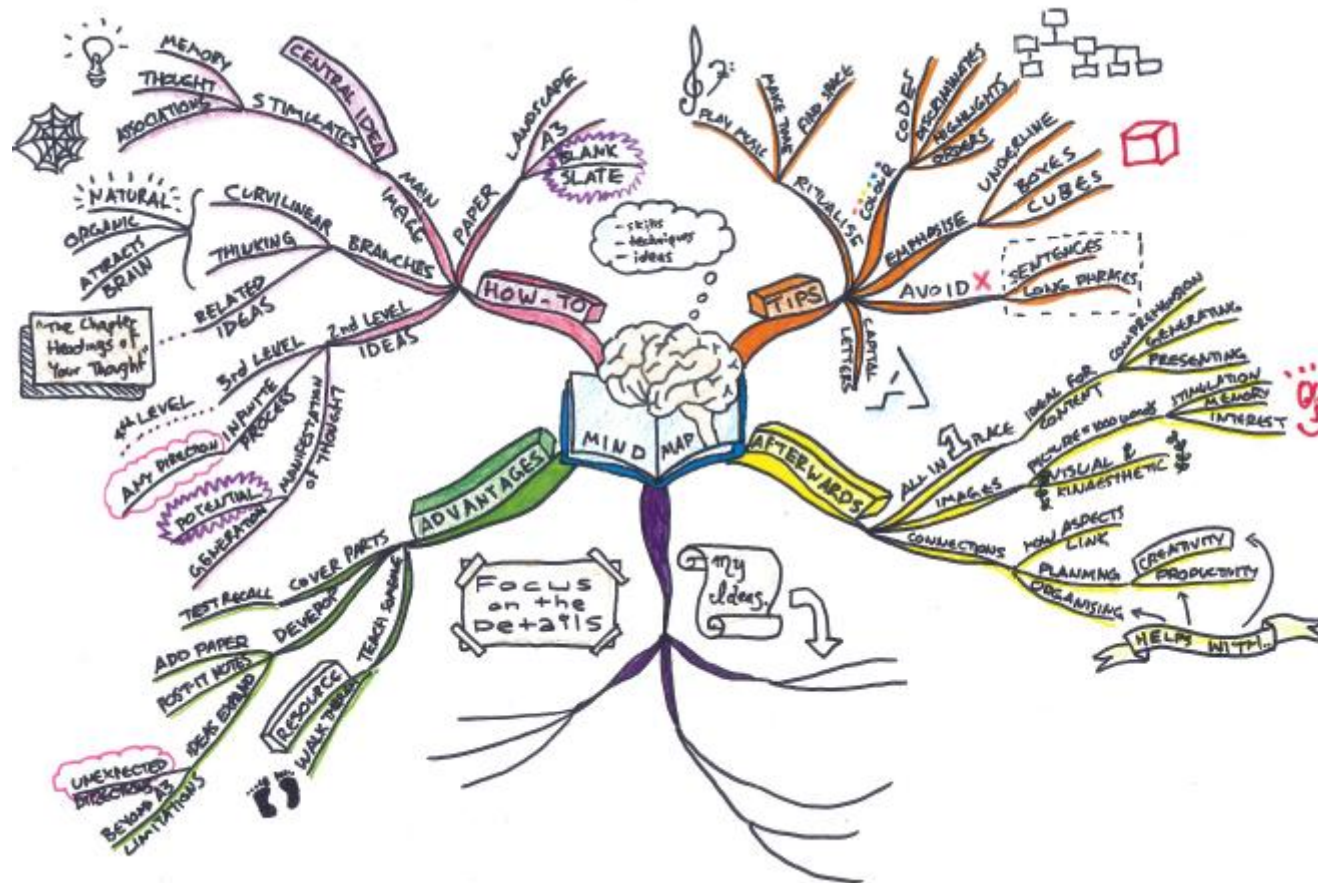 MIND MAP
- skills
- techniques
- ideas
HOW-TO
PAPER
LANDSCAPE
A3
BLANK
SLATE
MAIN
IMAGE
CENTRAL IDEA
STIMULATES
MEMORY
THOUGHT
ASSOCIATIONS
BRANCHES
CURVILINEAR
NATURAL
ORGANIC
ATTRACTS
BRAIN
THINKING
RELATED
IDEAS
"The Chapter
Headings of
Your Thought"
2nd LEVEL
IDEAS
3rd LEVEL
LEVEL
INFINITE
PROCESS
ANY DIRECTION
MANIFESTATION
OF THOUGHT
POTENTIAL
GENERATION
TIPS
RITUALISE
PLAY MUSIC
MAKE TIME
FIND SPACE
COLOUR
CODES
DISCRIMINATES
HIGHLIGHTS
ORDERS
EMPHASISE
UNDERLINE
BOXES
CUBES
AVOID X
SENTENCES
LONG PHRASES
CAPITAL
LETTERS
AFTERWARDS
ALL IN 1 PLACE
IDEAL FOR
CONTENT
COMPREHENSION
GENERATING
PRESENTING
IMAGES
PICTURE = 1000 WORDS
STIMULATION
MEMORY
INTEREST
VISUAL &
KINAESTHETIC
CONNECTIONS
HOW ASPECTS
LINK
PLANNING
CREATIVITY
PRODUCTIVITY
ORGANISING
HELPS WITH..
ADVANTAGES
COVER PARTS
TEST RECALL
DEVELOP
ADD PAPER
POST-IT NOTES
IDEAS EXPAND
UNEXPECTED
DIRECTIONS
BEYOND A3
LIMITATIONS
TEACH SOMEONE
RESOURCE
WALK THEM
Focus
on the
Details
My
Ideas.